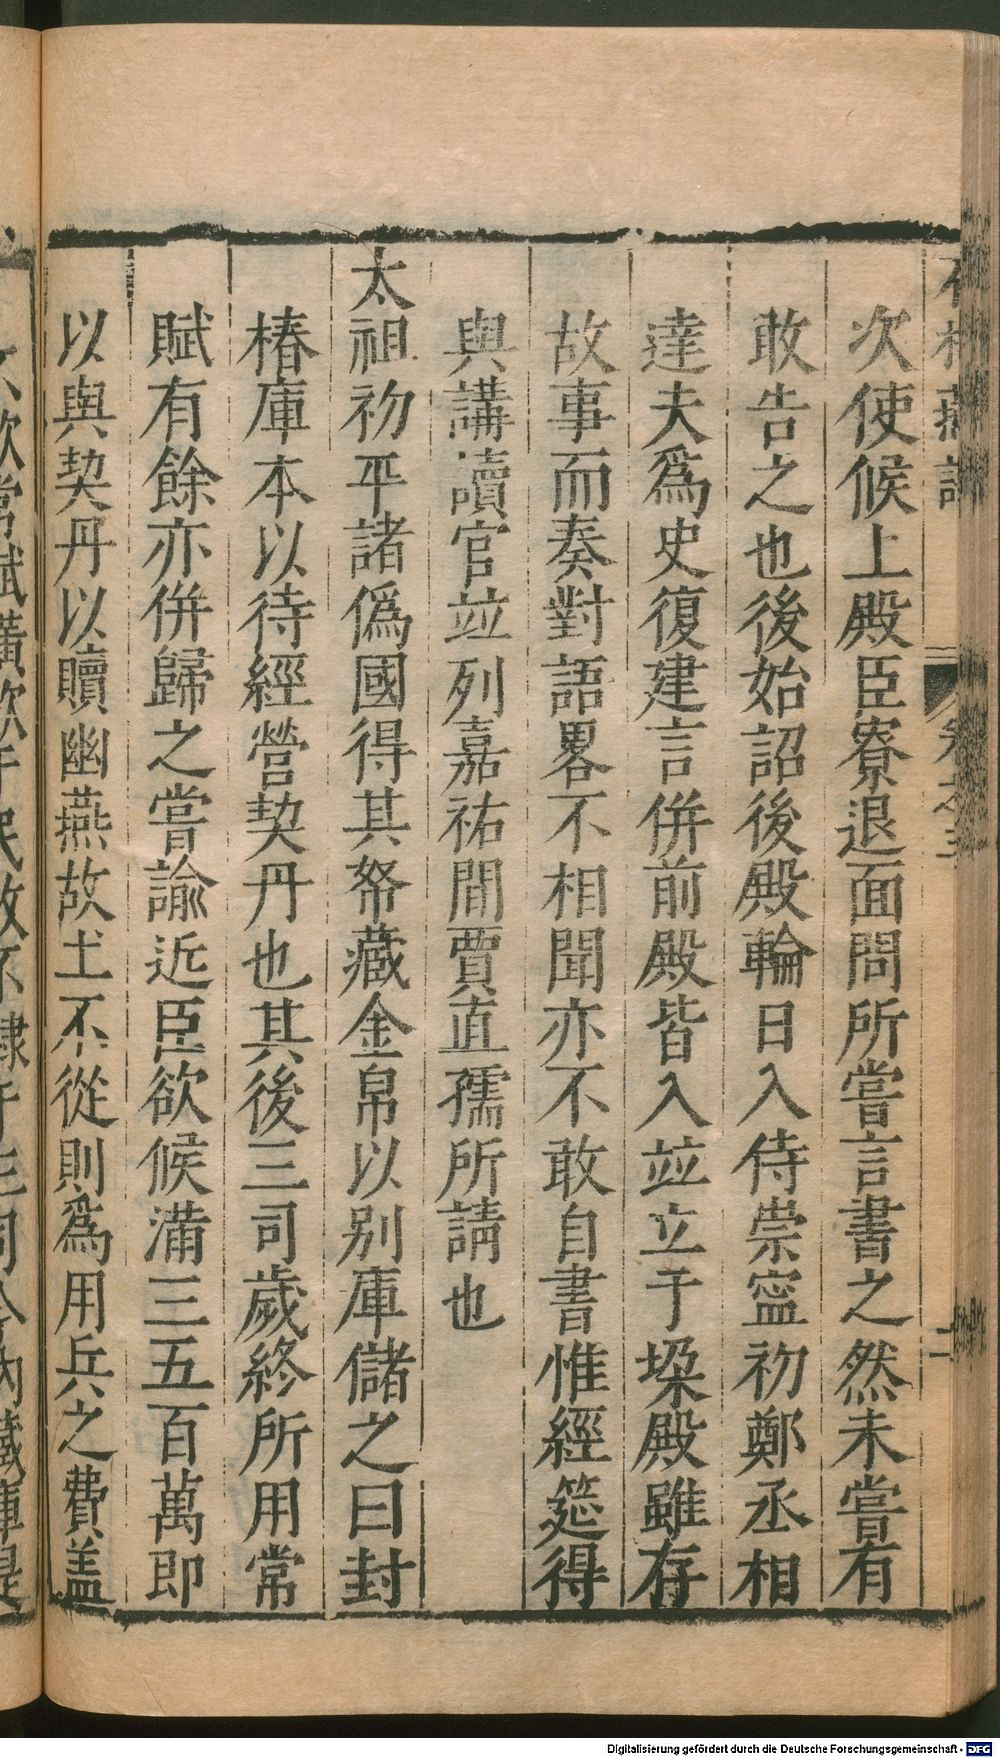 次使候上殿臣寮退面問所嘗言書之然未嘗有
敢告之也後始詔後殿輪日入侍崇寧初鄭丞相
達夫爲史復建言併前殿皆入竝立于垜殿雖存
故事而奏對語畧不相聞亦不敢自書惟經筵得
與講讀官竝列嘉祐間賈直孺所請也
太祖初平諸僞國得其帑藏金帛以别庫儲之曰封
椿庫本以待經營契丹也其後三司歲終所用常
賦有餘亦併歸之嘗諭近臣欲候滿三五百萬即
以與契丹以贖幽燕故土不從則爲用兵之費盖
Digitalisierung gefördert durch die Deutsche Forschungsgemeinschaft - DFG